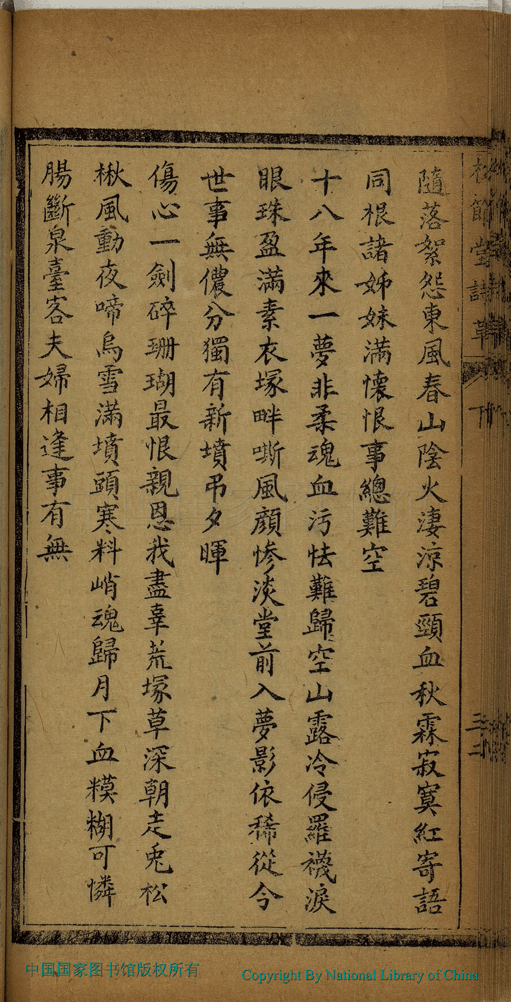 隨落絮怨東風春山陰火淒涼碧頸血秋霖寂寞紅寄語
同根諸姊妹滿懷恨事總難空
十八年來一夢非柔魂血污怯難歸空山露冷侵羅襪淚
眼珠盈滿素衣塚畔嘶風顏慘淡堂前入夢影依稀從今
世事無儂分獨有新墳弔夕暉
傷心一劍碎珊瑚最恨親恩我盡辜荒塚草深朝走兎松
楸風動夜啼烏雪滿墳頭寒料峭魂歸月下血糢糊可憐
腸斷泉臺客夫婦相逢事有無
中国国家图书馆版权所有
Copyright By National Library of China